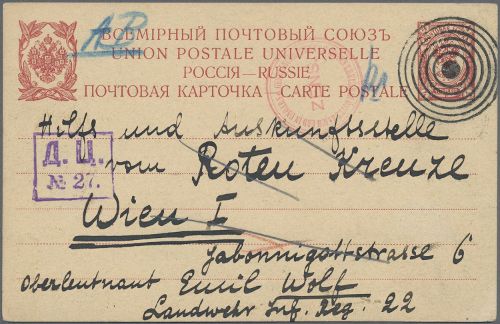 AR
ВСЕМІРНЫЙ ПОЧТОВЫЙ СОЮЗЪ
UNION POSTALE UNIVERSELLE
РОССІЯ—RUSSIE
ПОЧТОВАЯ КАРТОЧКА—CARTE POSTALE
Hilfs und Auskunftsstelle
vom Roten Kreuze
Д. Ц.
№ 27.
Wien I
Jabornigottstrasse 6
Oberleutnant Emil Wolf
Landwehr Inf. Reg. 22